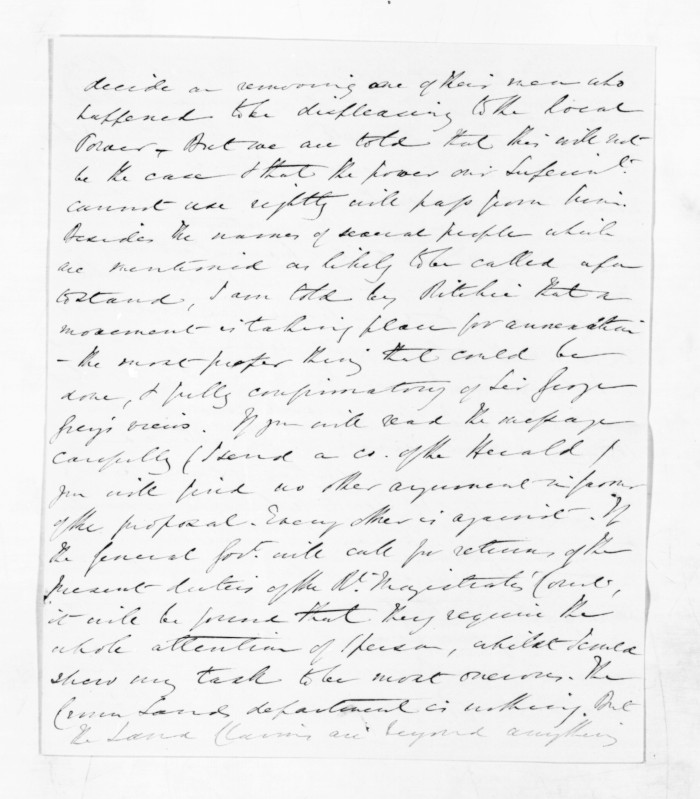 decide on removing one of their men who
happened to be displeasing to the Local
Power. But we are told that this will not
be the case & that the power our Superint.
cannot use rightly will pass from him.
Besides the names of several people which
are mentioned as likely to be called upon
to stand, I am told by Ritchie that a
movement is taking place for annexation
- the most proper thing that could be
done, & fully confirmatory of Sir George
Grey's views. If you will read the message
carefully (I send a co. of the Herald)
you will find no other argument in favor
of the proposal. Every other is against. If
the General Govt. will call for returns of the
present duties of the Rt. Magistrates' Court,
it will be found that they require the
whole attention of 1 person, whilst I could
shew my task to be most onerous. The
Crown Lands department is nothing. But
the Land Claims are beyond anything